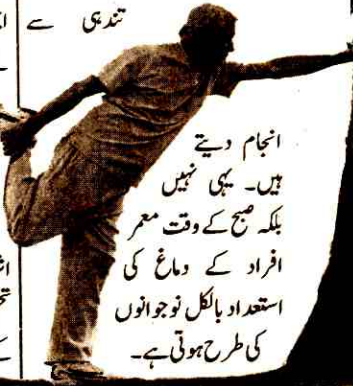 تندہی سے
انجام دیتے
ہیں۔ یہی نہیں
بلکہ صبح کے وقت معمر
افراد کے دماغ کی
استعداد بالکل نوجوانوں
کی طرح ہوتی ہے۔